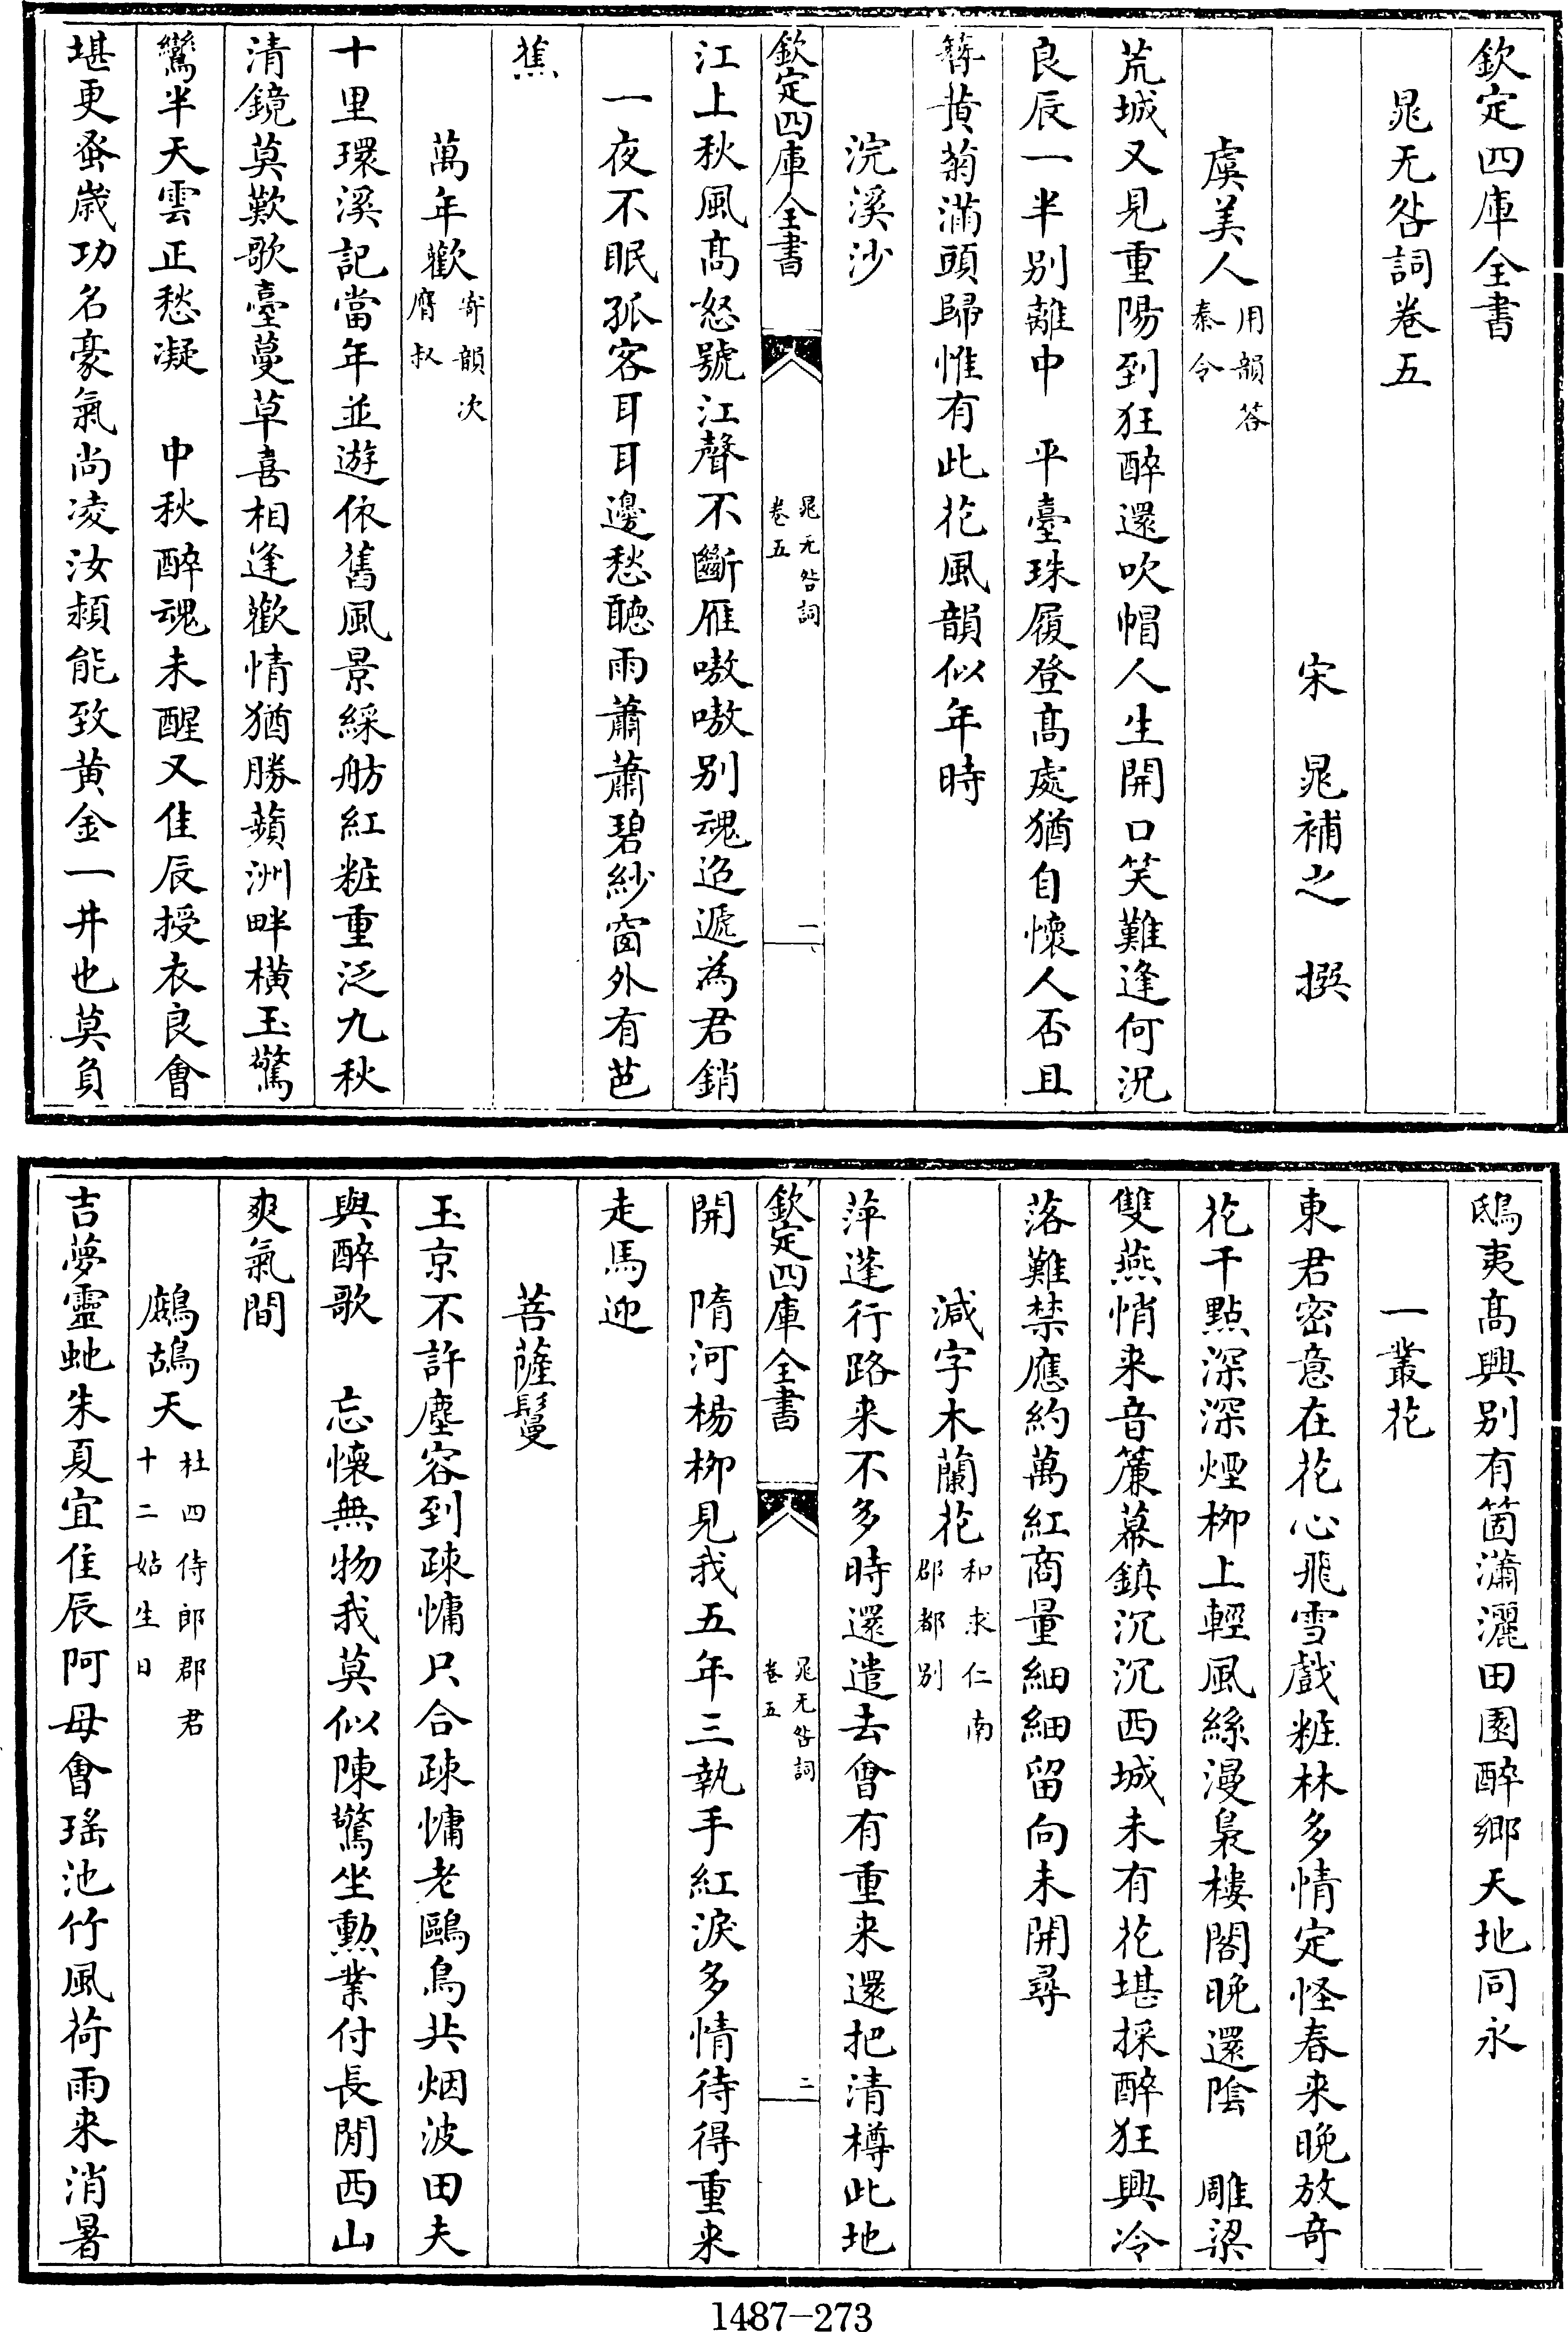 欽定四庫全書
晁无咎詞卷五
宋　晁補之　撰
虞美人用韻答秦令
荒城又見重陽到狂醉還吹帽人生開口笑難逢何況
良辰一半别離中　平臺珠履登高處猶自懷人否且
簪黄菊滿頭歸惟有此花風韻似年時
浣溪沙
欽定四庫全書
晁无咎詞
卷五
一
江上秋風高怒號江聲不斷雁嗷嗷别魂迢遞為君銷
一夜不眠孤客耳耳邊愁聽雨蕭蕭碧紗窗外有芭
蕉
萬年歡寄韻次膺叔
十里環溪記當年並遊依舊風景綵舫紅粧重泛九秋
清鏡莫歎歌臺蔓草喜相逢歡情猶勝蘋洲畔横玉驚
鸞半天雲正愁凝　中秋醉魂未醒又佳辰授衣良會
堪更蚤歲功名豪氣尚凌汝潁能致黄金一井也莫負
鴟夷高興别有箇瀟灑田園醉鄉天地同永
一叢花
東君密意在花心飛雪戲粧林多情定怪春来晚放竒
花千點深深煙栁上輕風絲漫裊樓閣晚還隂　雕梁
雙燕悄来音簾幕鎮沉沉西城未有花堪採醉狂興冷
落難禁應約萬紅商量細細留向未開尋
減字木蘭花和求仁南郡都别
萍蓬行路来不多時還遣去會有重来還把清樽此地
欽定四庫全書
晁无咎詞
卷五
二
開　隋河楊栁見我五年三執手紅淚多情待得重来
走馬迎
菩薩鬘
玉京不許塵容到疎慵只合疎慵老鷗鳥共烟波田夫
與醉歌　忘懷無物我莫似陳驚坐勲業付長閒西山
爽氣間
鷓鴣天杜四侍郎郡君十二姑生日
吉夢靈虵朱夏宜佳辰阿母會瑶池竹風荷雨来消暑
1487-273